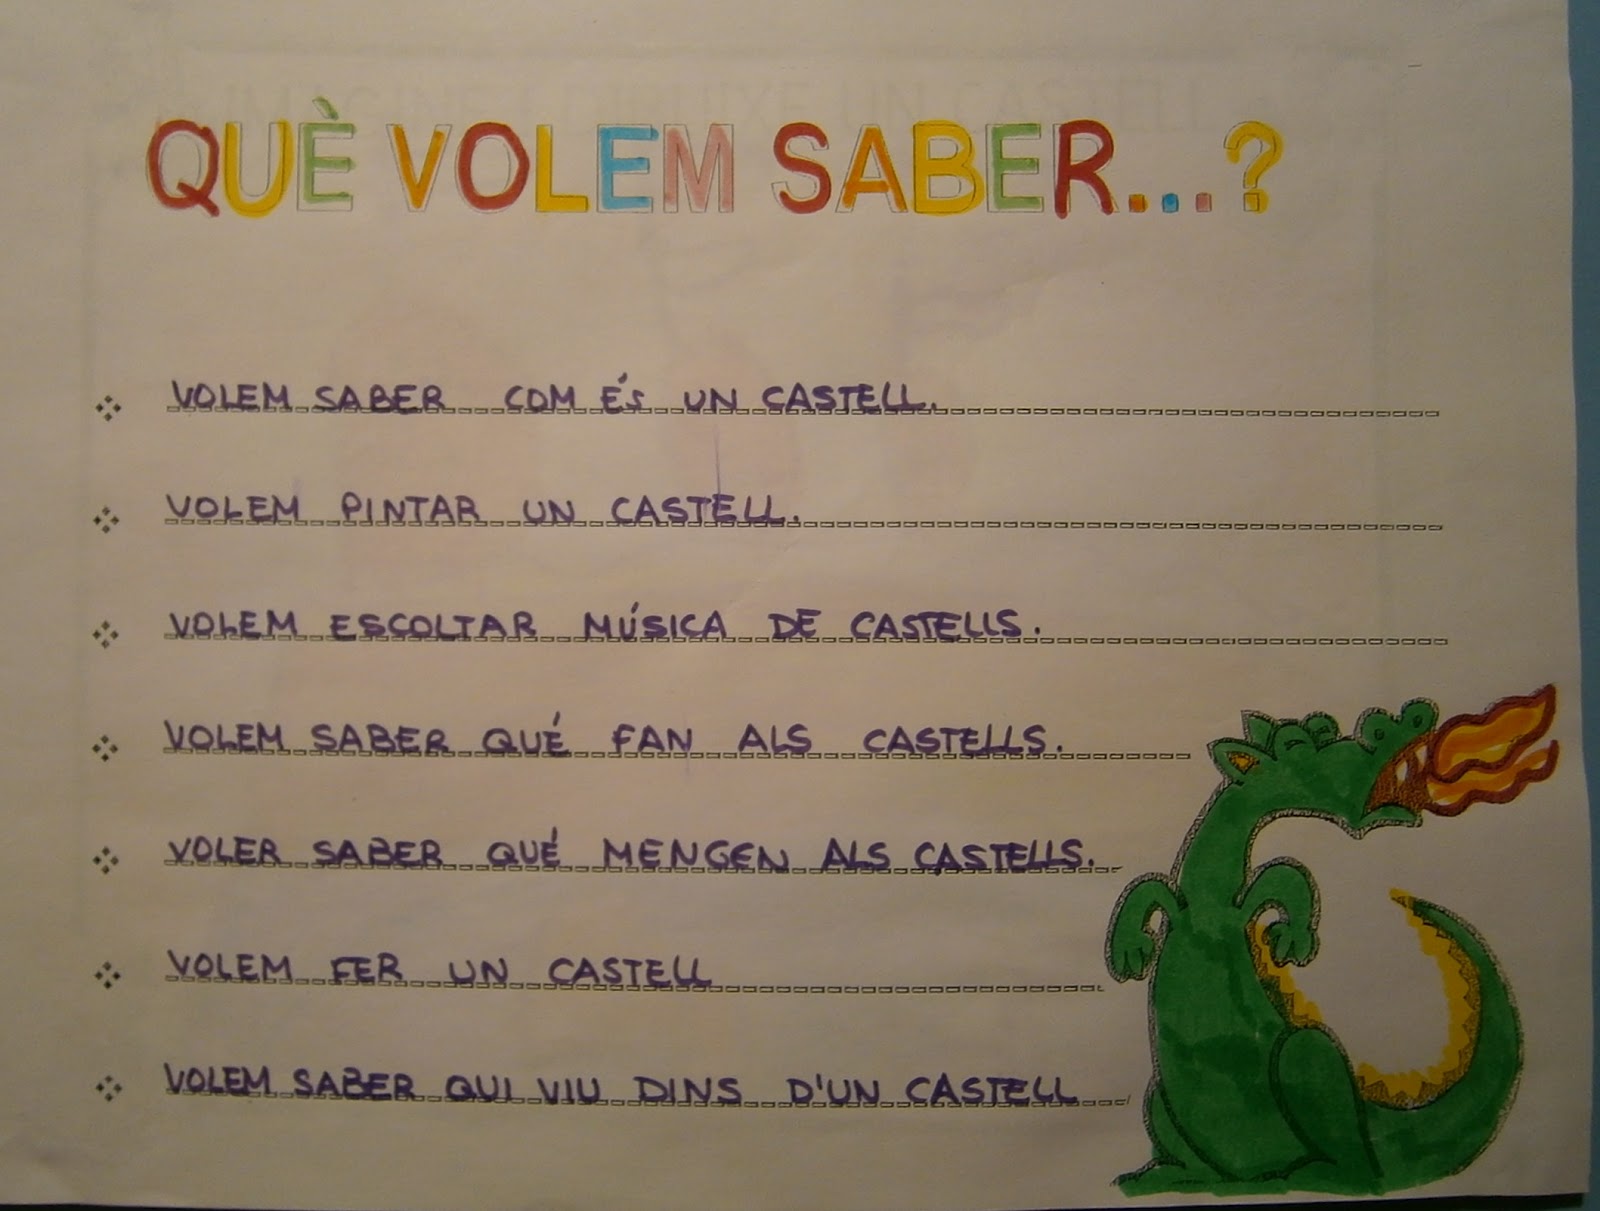 QUÈ VOLEM SABER...?
VOLEM SABER COM ÉS UN CASTELL.
VOLEM PINTAR UN CASTELL.
VOLEM ESCOLTAR MÚSICA DE CASTELLS.
VOLEM SABER QUÉ FAN ALS CASTELLS.
VOLER SABER QUÉ MENGEN ALS CASTELLS.
VOLEM FER UN CASTELL
VOLEM SABER QUI VIU DINS D'UN CASTELL